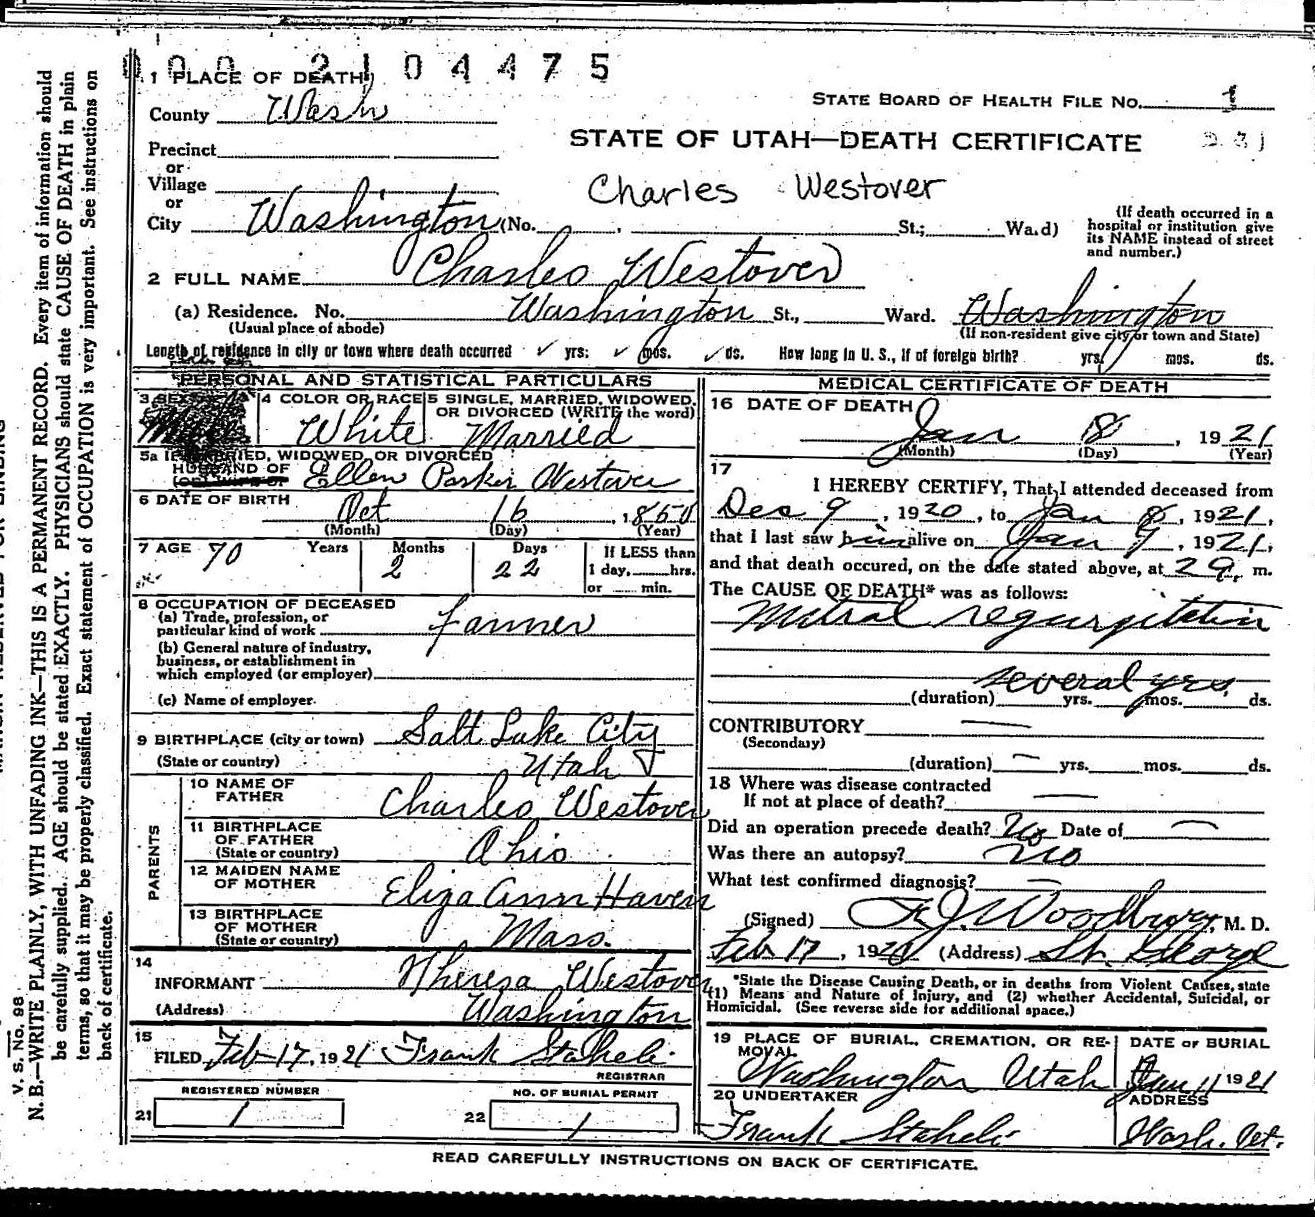 000 2104475
1 PLACE OF DEATH
County Wash
STATE BOARD OF HEALTH FILE NO. 1
STATE OF UTAH—DEATH CERTIFICATE 231
Precinct
or
Village
or
City Washington (No. , St.; Ward)
Charles Westover
(If death occurred in a
hospital or institution give
its NAME instead of street
and number.)
2 FULL NAME Charles Westover
(a) Residence. No. Washington St., Ward. Washington
(Usual place of abode) (If non-resident give city or town and State)
Length of residence in city or town where death occurred ✓ yrs. ✓ mos. ✓ ds. How long in U. S., if of foreign birth? yrs. mos. ds.
PERSONAL AND STATISTICAL PARTICULARS
3 SEX 4 COLOR OR RACE 5 SINGLE, MARRIED, WIDOWED,
OR DIVORCED (WRITE the word)
White Married
5a IF MARRIED, WIDOWED, OR DIVORCED
HUSBAND OF Ellen Parker Westover
(or) WIFE OF
6 DATE OF BIRTH
Oct 16, 1850
(Month) (Day) (Year)
7 AGE 70 Years Months 2 Days 22 If LESS than
1 day, hrs.
or min.
8 OCCUPATION OF DECEASED
(a) Trade, profession, or
particular kind of work farmer
(b) General nature of industry,
business, or establishment in
which employed (or employer)
(c) Name of employer
9 BIRTHPLACE (city or town) Salt Lake City
(State or country) Utah
PARENTS
10 NAME OF
FATHER Charles Westover
11 BIRTHPLACE
OF FATHER
(State or country) Ohio
12 MAIDEN NAME
OF MOTHER Eliza Ann Haven
13 BIRTHPLACE
OF MOTHER
(State or country) Mass.
14
INFORMANT Theresa Westover
(Address) Washington
15
FILED Feb 17, 1921 Frank Staheli
REGISTRAR
REGISTERED NUMBER NO. OF BURIAL PERMIT
21 1 22 1
MEDICAL CERTIFICATE OF DEATH
16 DATE OF DEATH
Jan 8, 1921
(Month) (Day) (Year)
17
I HEREBY CERTIFY, That I attended deceased from
Dec 9, 1920, to Jan 8, 1921,
that I last saw him alive on Jan 7, 1921,
and that death occured, on the date stated above, at 2 a. m.
The CAUSE OF DEATH* was as follows:
Mitral regurgitation
several yrs.
(duration) yrs. mos. ds.
CONTRIBUTORY —
(Secondary)
(duration) — yrs. mos. ds.
18 Where was disease contracted
If not at place of death? —
Did an operation precede death? No Date of —
Was there an autopsy? no
What test confirmed diagnosis? —
(Signed) F. J. Woodbury, M. D.
Feb 17, 192 (Address) St. George
*State the Disease Causing Death, or in deaths from Violent Causes, state
(1) Means and Nature of Injury, and (2) whether Accidental, Suicidal, or
Homicidal. (See reverse side for additional space.)
19 PLACE OF BURIAL, CREMATION, OR RE-
MOVAL
Washington Utah
DATE OF BURIAL
Jan 11 1921
20 UNDERTAKER
Frank Staheli
ADDRESS
Wash. Ut.
READ CAREFULLY INSTRUCTIONS ON BACK OF CERTIFICATE.
V. S. No. 98
N. B.—WRITE PLAINLY, WITH UNFADING INK—THIS IS A PERMANENT RECORD. Every item of information should
be carefully supplied. AGE should be stated EXACTLY. PHYSICIANS should state CAUSE OF DEATH in plain
terms, so that it may be properly classified. Exact statement of OCCUPATION is very important. See instructions on
back of certificate.